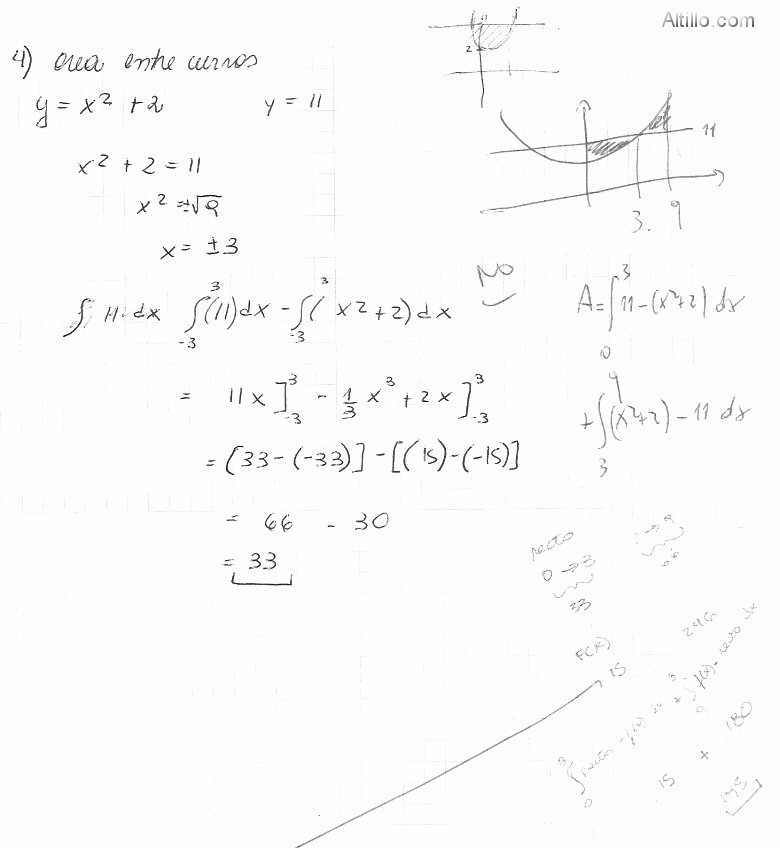 Altillo.com
4) area entre curvas
y = x² + 2    y = 11
x² + 2 = 11
x² = ±√9
x = ± 3
∫ 11 dx  ∫₋₃³ (11) dx - ∫₋₃³ (x² + 2) dx
= 11x ]₋₃³ - 1/3 x³ + 2x ]₋₃³
= [33 - (-33)] - [(15) - (-15)]
= 66 - 30
= 33
2
11
3.  9
NO
A = ∫₀³ 11 - (x²+2) dx
+ ∫₃⁹ (x²+2) - 11 dx
recta
0 → 3
33
F(x)
15
246
180
15 +
195